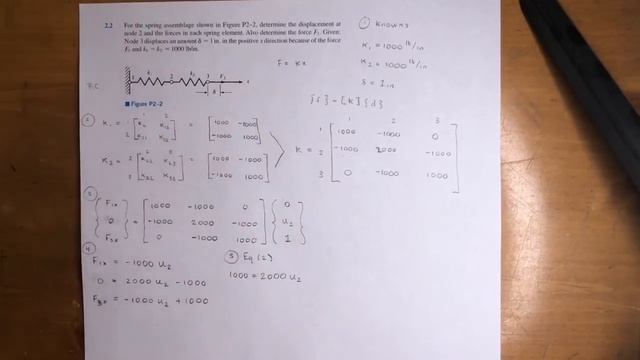 2.2 For the spring assemblage shown in Figure P2–2, determine the displacement at
node 2 and the forces in each spring element. Also determine the force F₃. Given:
Node 3 displaces an amount δ = 1 in. in the positive x direction because of the force
F₃ and k₁ = k₂ = 1000 lb/in.
k₁ k₂
1 2 3 F₃ x
δ
B.C
■ Figure P2–2
F = kx
① Knowns
K₁ = 1000 lb/in
K₂ = 1000 lb/in
δ = 1 in
{f} = [K]{d}
② 1 2
K₁ = 1 [K₁₁ K₁₂ = [1000 -1000
2 K₂₁ K₂₂] -1000 1000]
2 3
K₂ = 2 [K₂₂ K₂₃ = [1000 -1000
3 K₃₂ K₃₃] -1000 1000]
1 2 3
1 1000 -1000 0
K = 2 -1000 2000 -1000
3 0 -1000 1000
③
{F₁ₓ [1000 -1000 0 {0
0 = -1000 2000 -1000 u₂
F₃ₓ} 0 -1000 1000] 1}
④
F₁ₓ = -1000 u₂
0 = 2000 u₂ - 1000
F₃ₓ = -1000 u₂ + 1000
⑤ Eq (2)
1000 = 2000 u₂